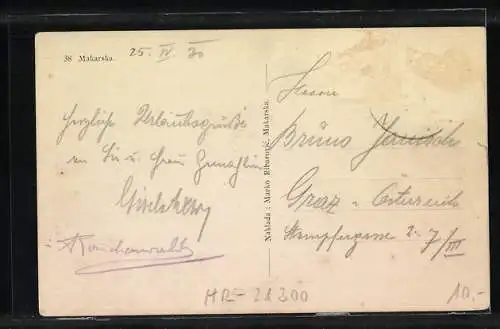 38 Makarska.
25. IV. 30
Herzliche Urlaubsgrüße
an Sie u. Frau Gemahlin
Naklada: Marko Ribarović, Makarska.
Herrn
Bruno
Graz - Österreich
Stempfergasse 7/III
MR-21300
10,-